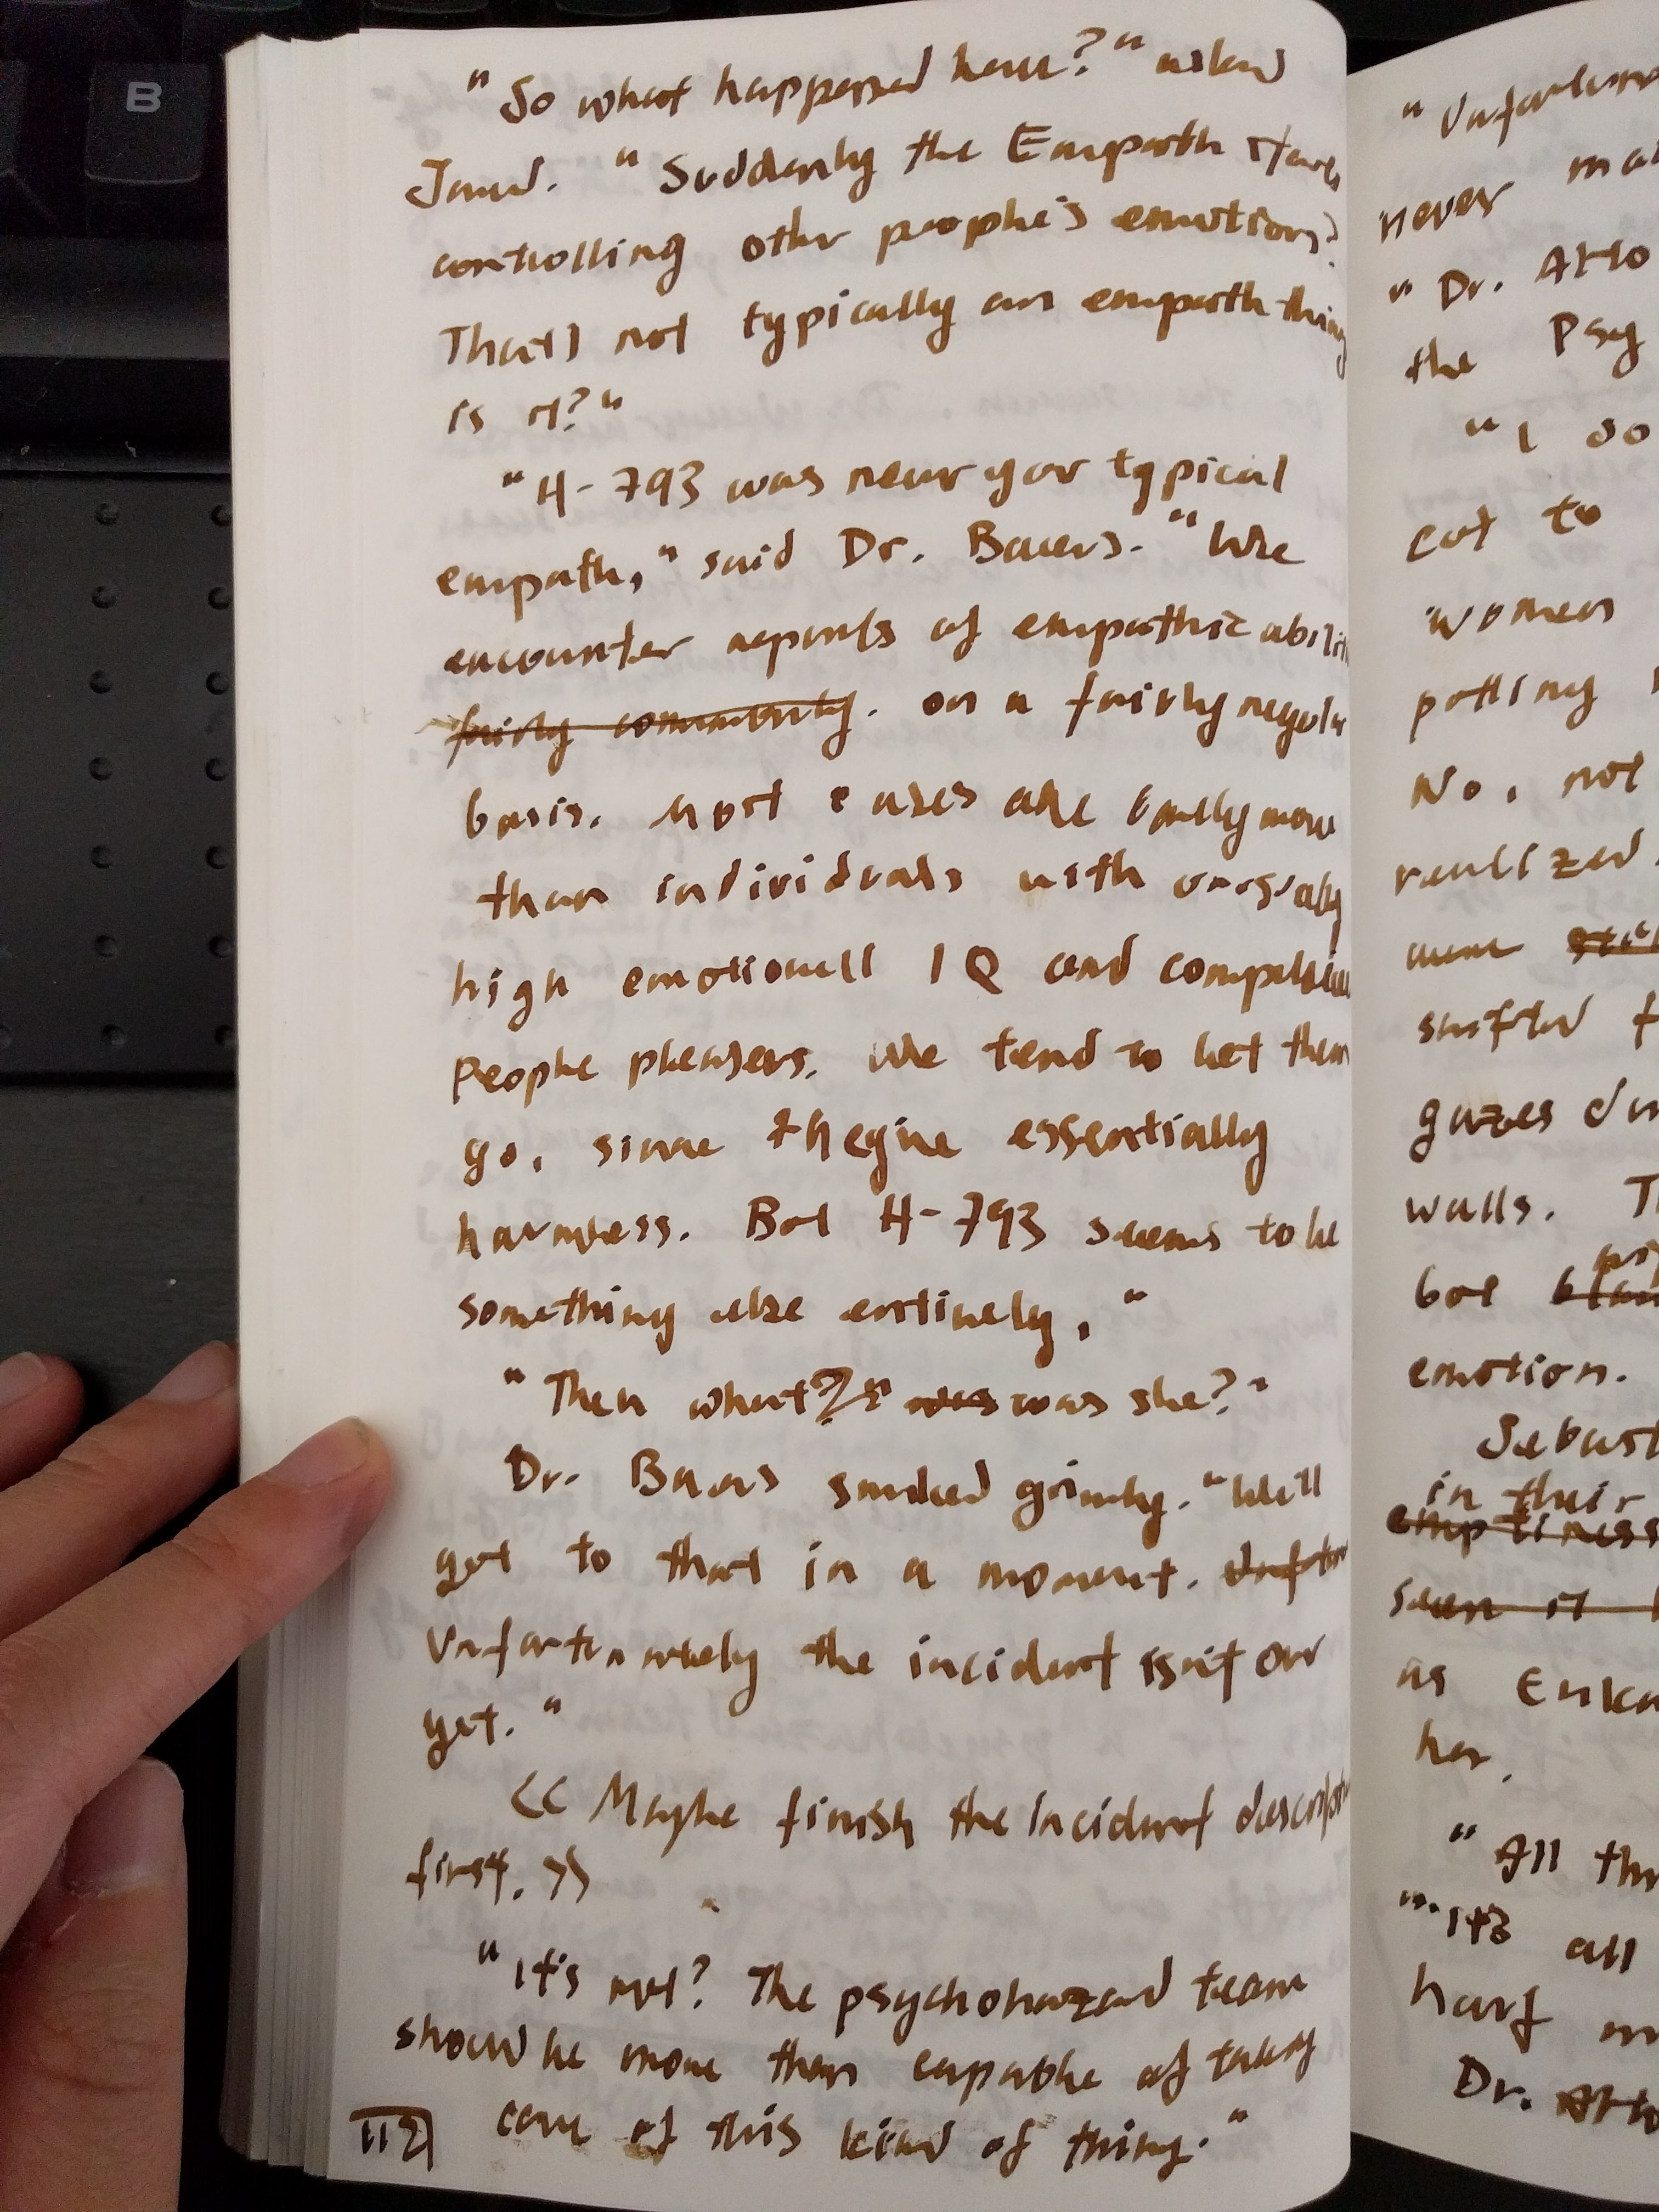 B
"So what happened here?" asked
Jared. "Suddenly the Empath starts
controlling other people's emotions?
That's not typically an empath thing
is it?"
"H-793 was never your typical
empath," said Dr. Bauers. "We
encounter reports of empathic abiliti
fairly commonly. on a fairly regular
basis. Most cases are barely more
than individuals with unusually
high emotionall IQ and compulsive
People pleasers. We tend to let them
go, since they're essentially
harmless. But H-793 seems to be
something else entirely."
"Then what?" was was she?"
Dr. Bauers smiled grimly. "We'll
get to that in a moment. Unfortun
Unfortunately the incident isn't over
yet."
<< Maybe finish the incident description
first. >>
"It's not? The psychohazard team
should be more than capable of taking
care of this kind of thing."
112
"Unfortun
never ma
"Dr. Atto
the Psy
"I do
cut to
women
putting
No, not
realized
were
shifted f
gazes du
walls. T
but
emotion.
Sebast
in their
emptiness
seen it
as Erika
her.
"All thr
"It's all
half m
Dr. Atto